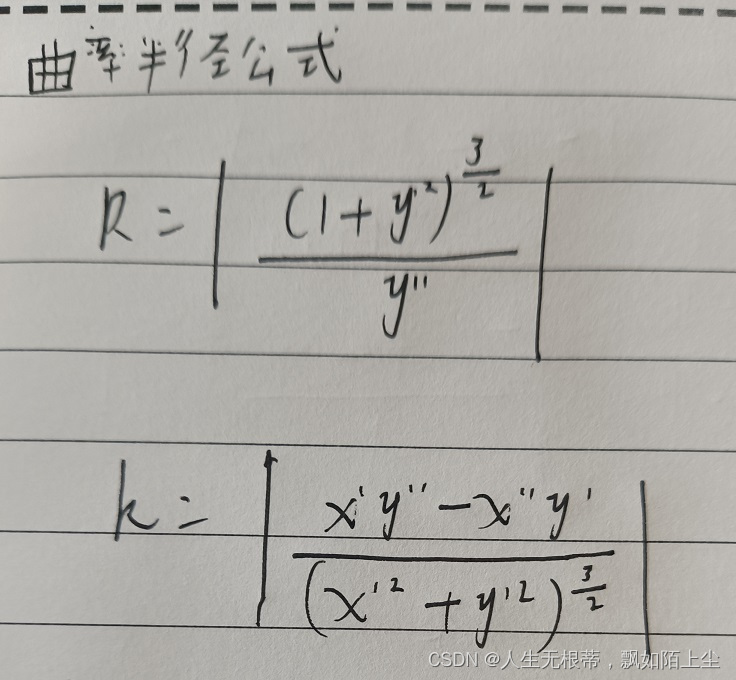 曲率半径公式
R = | (1 + y'²)^(3/2) / y'' |
k = | x'y'' - x''y' / (x'² + y'²)^(3/2) |
CSDN @人生无根蒂，飘如陌上尘